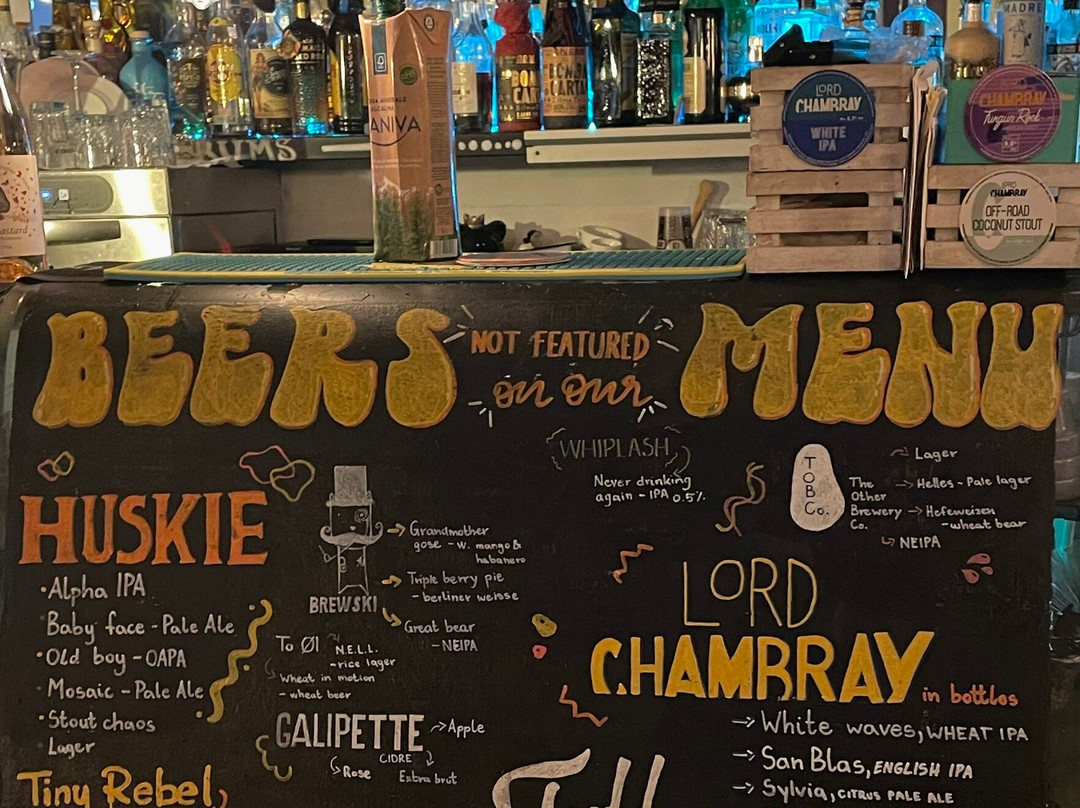 MADRE
ANIVA
RUMS
LORD
CHAMBRAY
WHITE
IPA
CHAMBRAY
Fungus Rock
LORD
CHAMBRAY
OFF-ROAD
COCONUT STOUT
BEERS NOT FEATURED on our MENU
WHIPLASH
Never drinking
again - IPA 0.5%
TOB Co.
The
Other
Brewery
Co.
Lager
Helles - Pale lager
Hefeweizen
- wheat bear
NEIPA
HUSKIE
·Alpha IPA
Baby face - Pale Ale
·Old boy - OAPA
·Mosaic - Pale Ale
·Stout chaos
·Lager
BREWSKI
Grandmother
gose - w. mango &
habanero
Triple berry pie
- berliner weisse
Great bear
- NEIPA
To Øl
N.E.L.L.
- rice lager
Wheat in motion
- wheat beer
GALIPETTE
CIDRE
Apple
Rose
Extra brut
LORD
CHAMBRAY in bottles
White waves, WHEAT IPA
San Blas, ENGLISH IPA
Sylvia, CITRUS PALE ALE
Tiny Rebel,